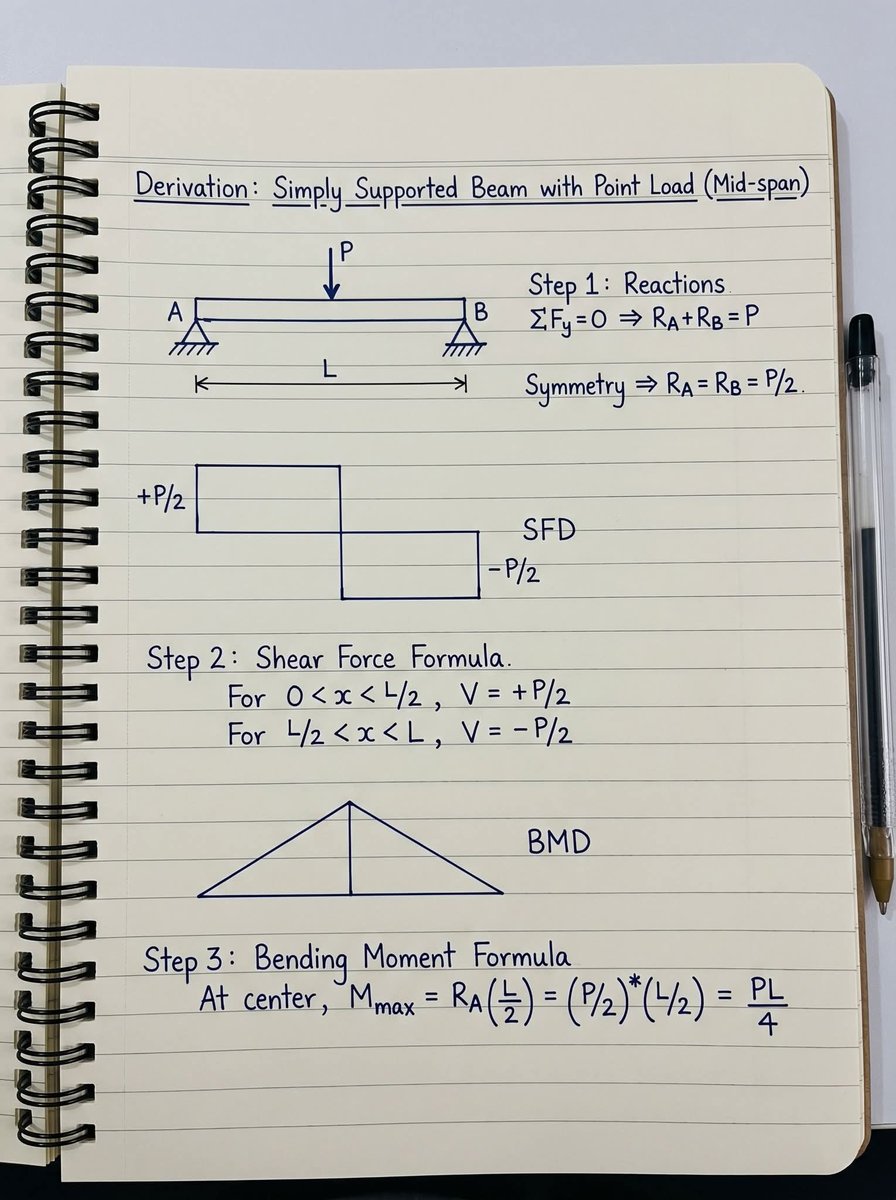 Derivation: Simply Supported Beam with Point Load (Mid-span)
P
A
B
L
Step 1: Reactions
ΣFy=0 ⇒ RA+RB=P
Symmetry ⇒ RA=RB=P/2.
+P/2
SFD
-P/2
Step 2: Shear Force Formula.
For 0<x<L/2, V=+P/2
For L/2<x<L, V=-P/2
BMD
Step 3: Bending Moment Formula
At center, Mmax = RA(L/2) = (P/2)*(L/2) = PL/4